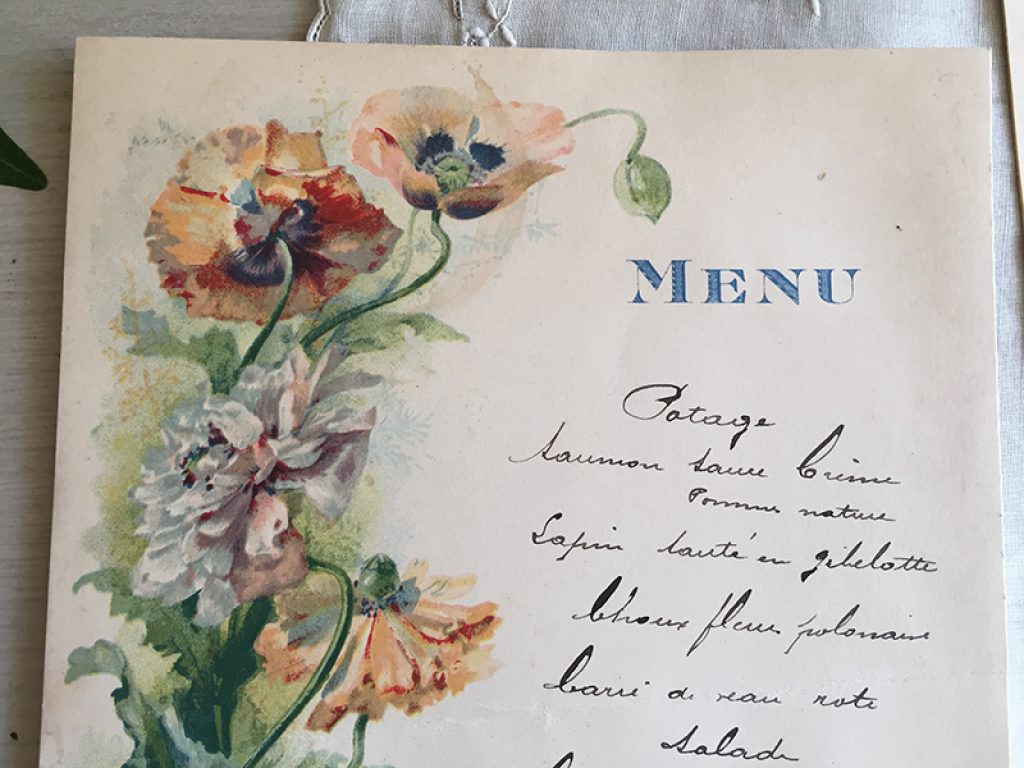 MENU
Potage
Saumon sauce Crème
Pommes nature
Lapin sauté en gibelotte
Choux fleurs polonaise
Carré de veau roti
Salade